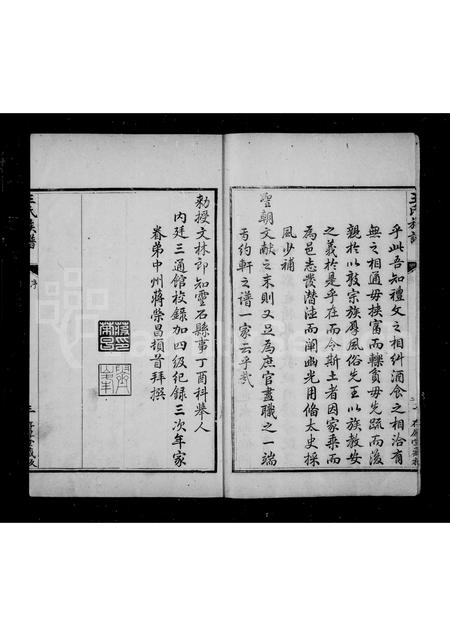 乎此吾知禮文之相糾酒食之相洽有
無之相通毋挾富而轢貧毋先疏而後
親於以敦宗族厚風俗先王以族教安
之義於是乎在而令斯土者因家乘而
為邑志發潛注而闡幽光用偹太史採
風少補
聖朝文獻之末則又且為庶官盡職之一端
耑約軒之譜一家云乎哉
勅授文林郎知靈石縣事丁酉科舉人
內廷三通館校錄加四級紀錄三次年家
眷弟中州蔣榮昌頓首拜撰
王氏族譜
序
三